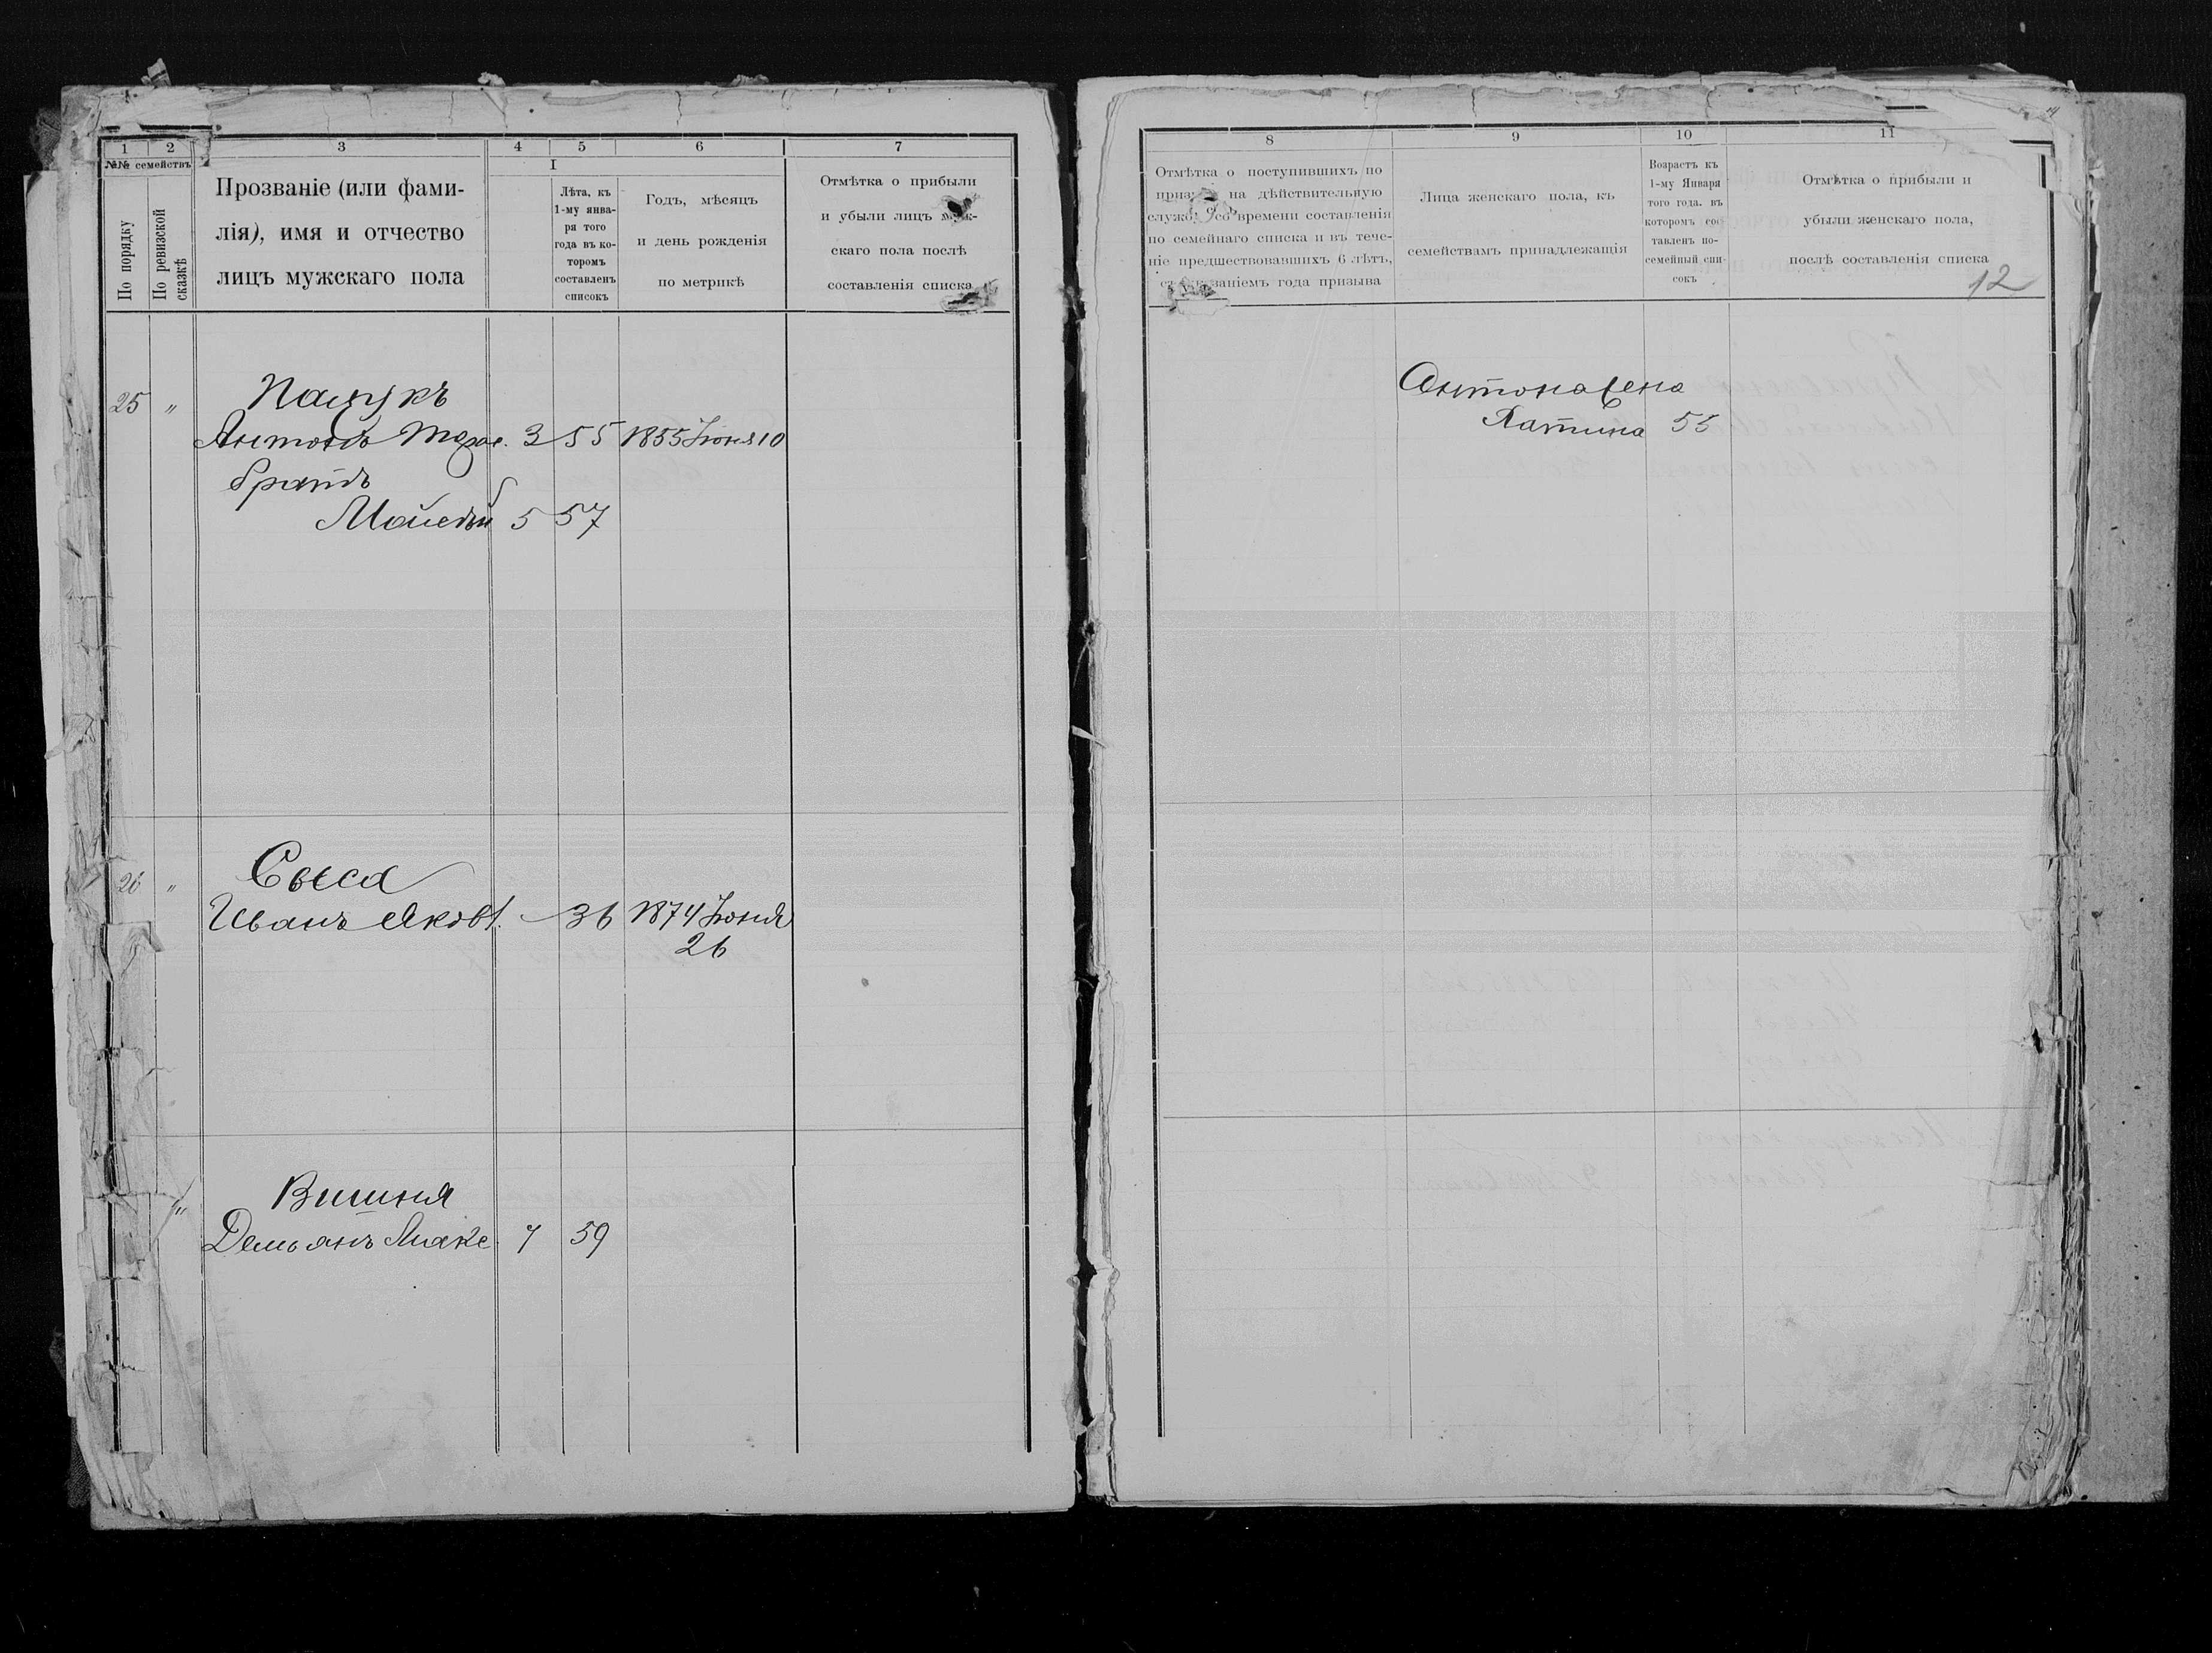 1 2 3 4 5 6 7
№№ семействъ
По порядку
По ревизской сказкѣ
Прозваніе (или фами-
лія), имя и отчество
лицъ мужскаго пола
I
Лѣта, къ
1-му янва-
ря того
года въ ко-
торомъ
составленъ
списокъ
Годъ, мѣсяцъ
и день рожденія
по метрикѣ
Отмѣтка о прибыли
и убыли лицъ
скаго пола послѣ
составленія списка
25 "
Антонъ 3 55 1855 Іюня 10
братъ
5 57
26 "
Сыса
Иванъ Яковл. - 36 1874 Іюня
26
"
Вишня
Демьянъ 7 59
8 9 10 11
Отмѣтка о поступившихъ по
на дѣйствительную
со времени составленія
по семейнаго списка и въ тече-
ніе предшествовавшихъ 6 лѣтъ,
года призыва
Лица женскаго пола, къ
семействамъ принадлежащія
Возрастъ къ
1-му Января
того года. въ
которомъ сос
тавленъ по-
семейный спи-
сокъ
Отмѣтка о прибыли и
убыли женскаго пола,
послѣ составленія списка
12
Антона жена
55